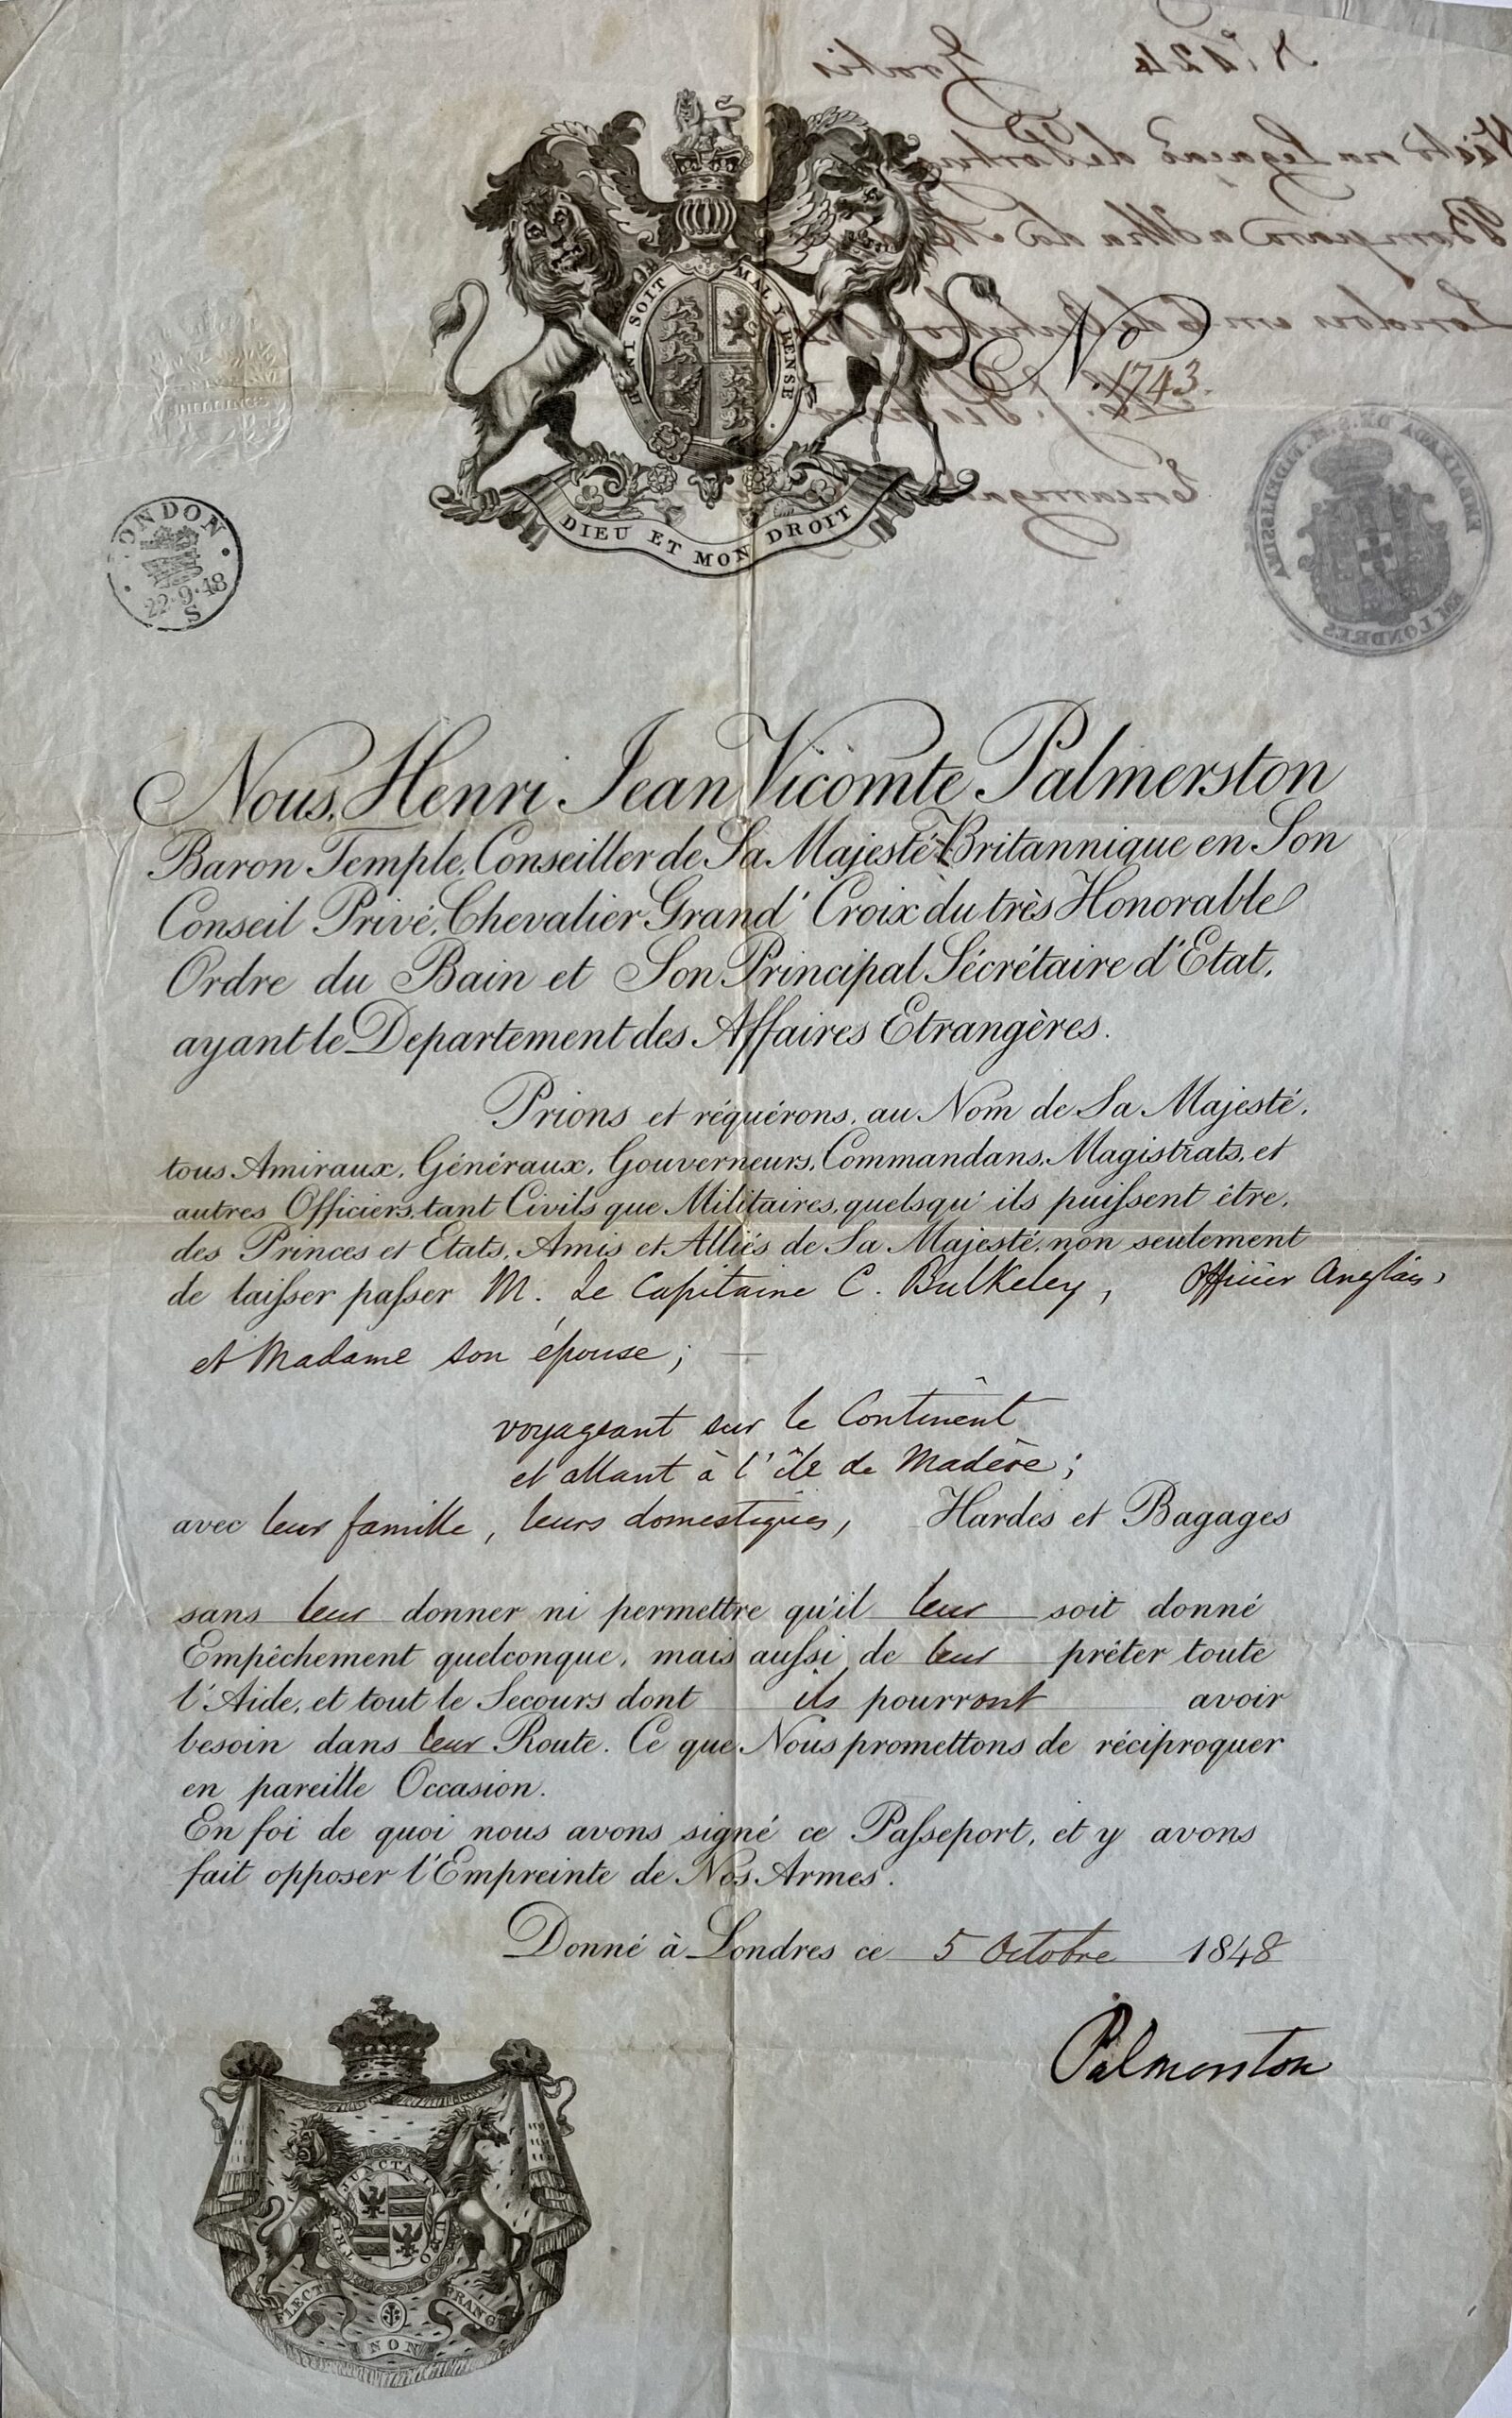 HONI SOIT QUI MAL Y PENSE
DIEU ET MON DROIT
No. 1743.
SHILLINGS
LONDON
22·9·48
S
EMBAIXADA DE S.M. FIDELISSIMA
EM LONDRES
No. 124 Gratis
Visto na Legação de
a Ilha da
Londres em 6 de
Nous, Henri Jean Vicomte Palmerston
Baron Temple, Conseiller de Sa Majesté Britannique en Son
Conseil Privé, Chevalier Grand' Croix du très Honorable
Ordre du Bain et Son Principal Sécrétaire d'Etat,
ayant le Departement des Affaires Etrangères.
Prions et réquérons, au Nom de Sa Majesté,
tous Amiraux, Généraux, Gouverneurs, Commandans, Magistrats, et
autres Officiers, tant Civils que Militaires, quelsqu'ils puissent être,
des Princes et Etats, Amis et Alliés de Sa Majesté, non seulement
de laisser passer M. Le Capitaine C. Bulkeley, Officier Anglais,
et Madame son épouse;
voyageant sur le Continent
et allant à l'île de Madère;
avec leur famille, leurs domestiques, Hardes et Bagages
sans leur donner ni permettre qu'il leur soit donné
Empêchement quelconque, mais aussi de leur prêter toute
l'Aide, et tout le Secours dont ils pourront avoir
besoin dans leur Route. Ce que Nous promettons de réciproquer
en pareille Occasion.
En foi de quoi nous avons signé ce Passeport, et y avons
fait opposer l'Empreinte de Nos Armes.
Donné à Londres ce 5 Octobre 1848
Palmerston
TRIA JUNCTA IN UNO
FLECTI NON FRANGI